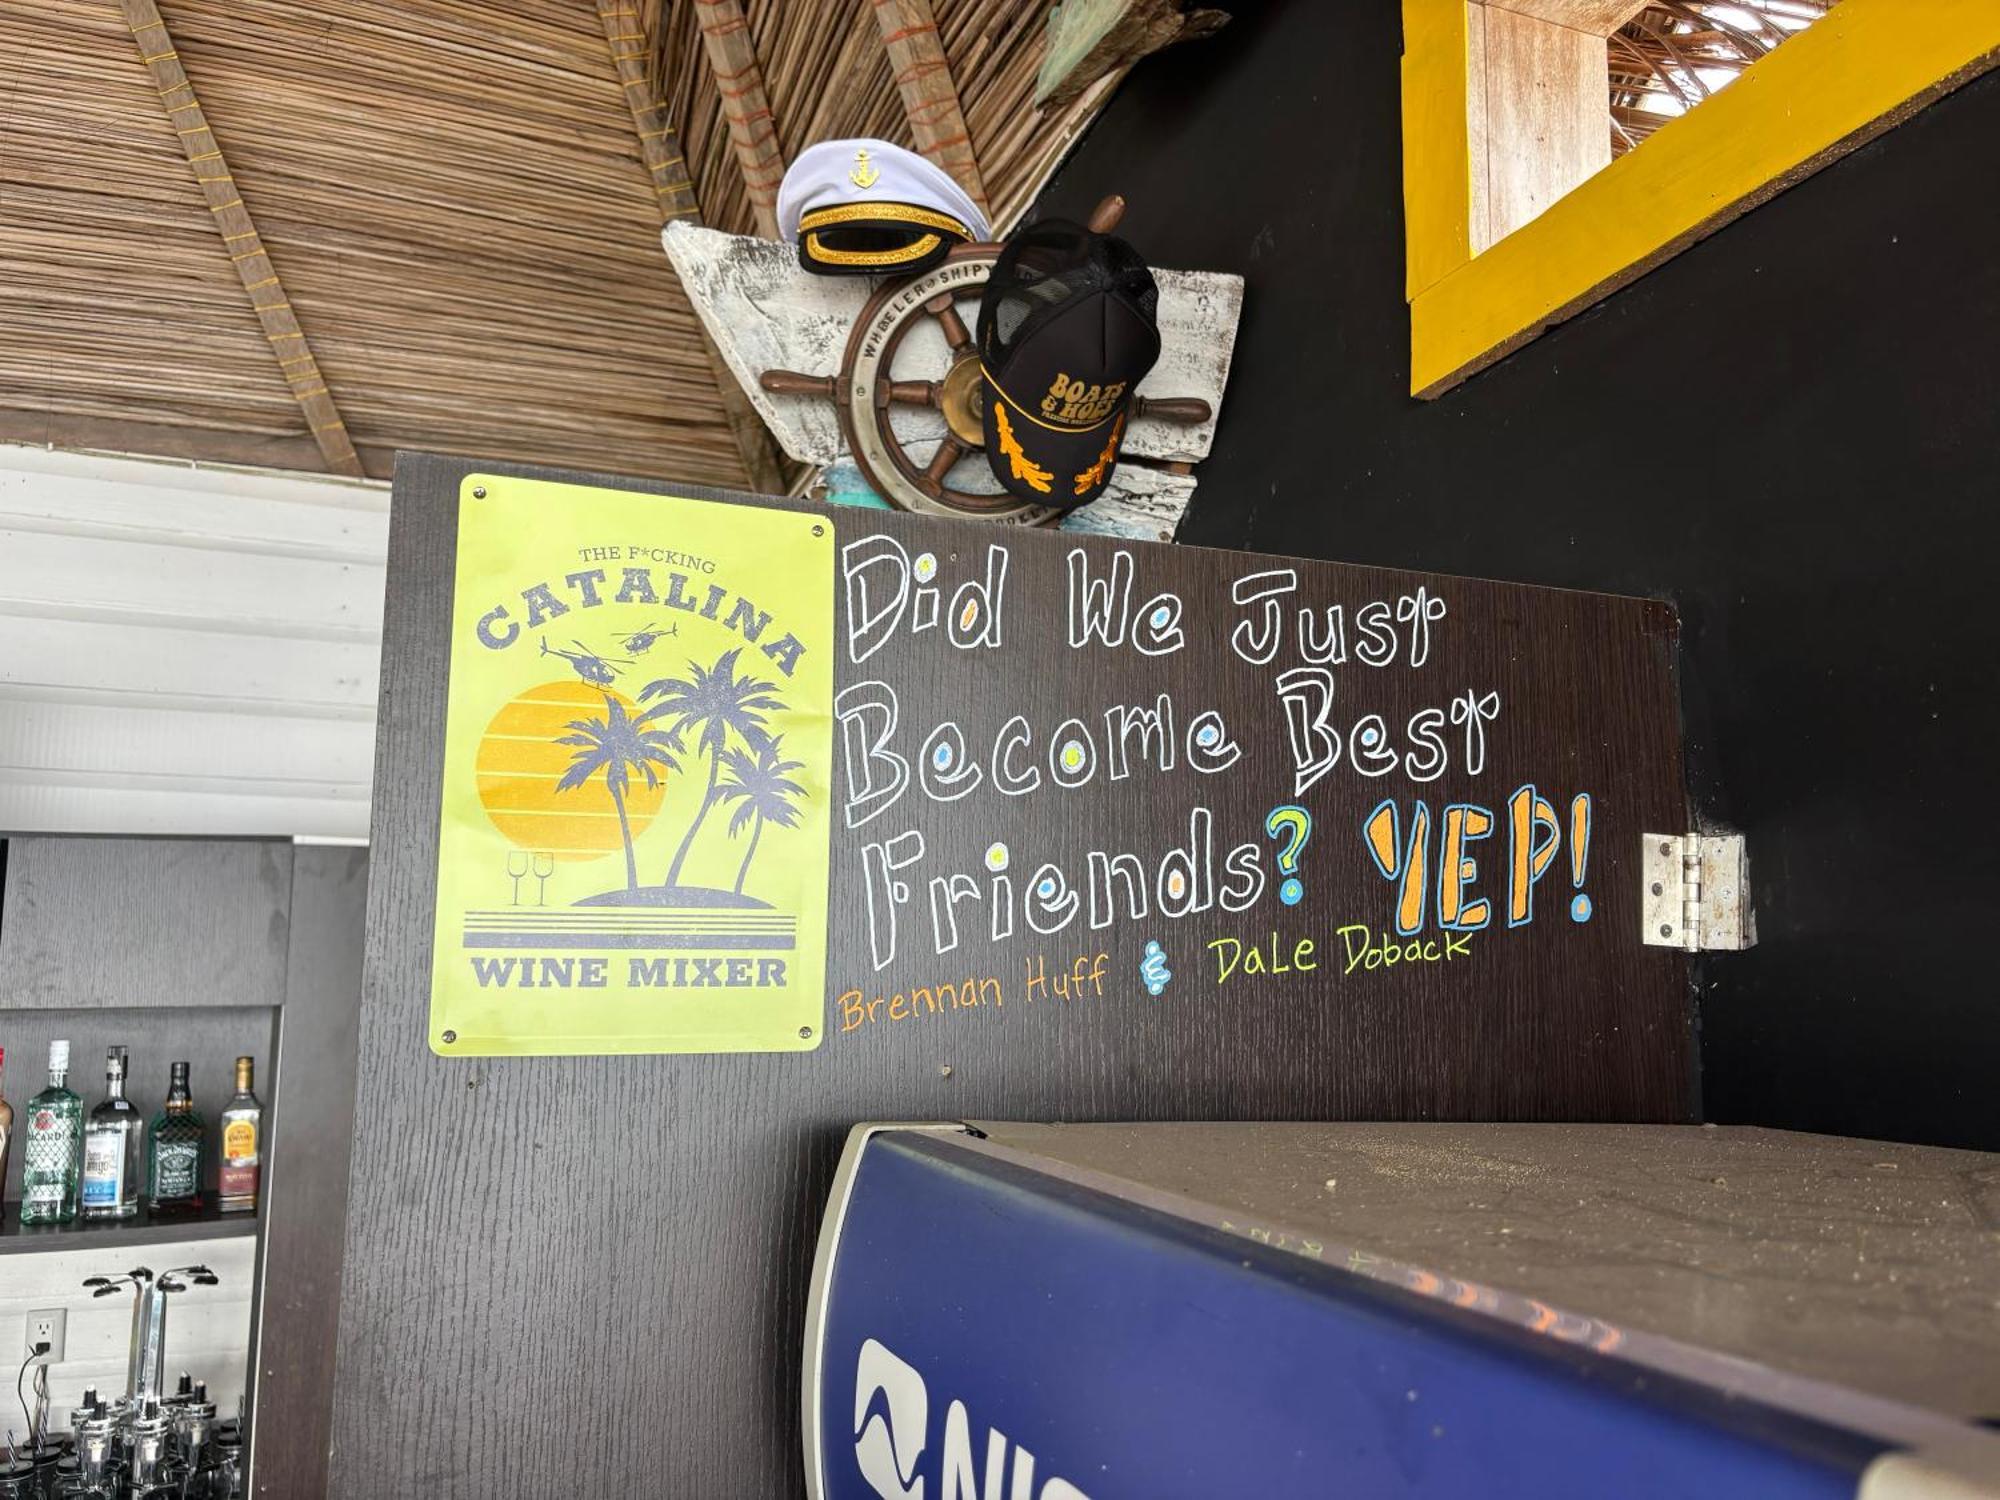 WHEELER SHIPY
BOATS
& HOES
THE F*CKING
CATALINA
WINE MIXER
Did We Just
Become Best
Friends? YEP!
Brennan Huff & Dale Doback
BACARDI
JACK DANIEL'S
NIC